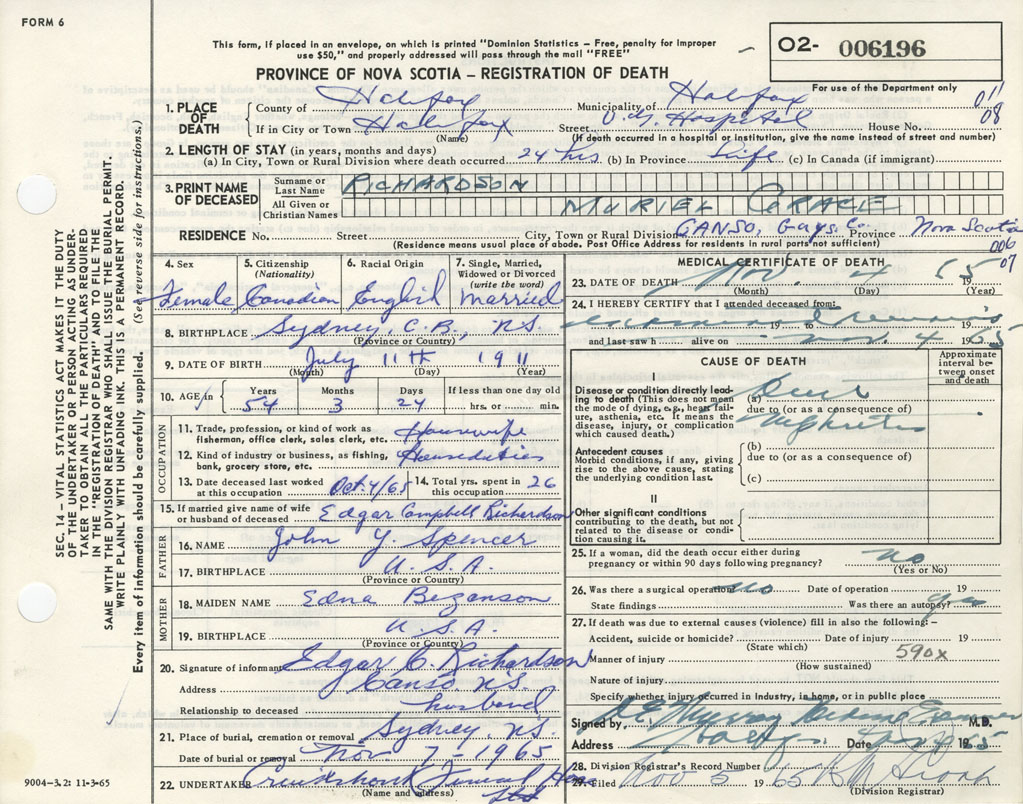 FORM 6
This form, if placed in an envelope, on which is printed "Dominion Statistics – Free, penalty for improper
use $50," and properly addressed will pass through the mail "FREE"
O2- 006196
PROVINCE OF NOVA SCOTIA – REGISTRATION OF DEATH
For use of the Department only
011
08
1. PLACE OF DEATH
County of Halifax Municipality of Halifax
If in City or Town Halifax Street V.G. Hospital House No.
(Name) (If death occurred in a hospital or institution, give the name instead of street and number)
2. LENGTH OF STAY (in years, months and days)
(a) In City, Town or Rural Division where death occurred 24 hrs. (b) In Province Life (c) In Canada (if immigrant)
3. PRINT NAME OF DECEASED
Surname or Last Name RICHARDSON
All Given or Christian Names MURIEL GRACE
RESIDENCE No. Street City, Town or Rural Division CANSO, Guys. Co. Province Nova Scotia
(Residence means usual place of abode. Post Office Address for residents in rural parts not sufficient)
006
07
4. Sex 5. Citizenship (Nationality) 6. Racial Origin 7. Single, Married, Widowed or Divorced (write the word)
Female Canadian English Married
8. BIRTHPLACE Sydney, C.B., N.S.
(Province or Country)
9. DATE OF BIRTH July 11th 1911
(Month) (Day) (Year)
10. AGE in Years Months Days If less than one day old
54 3 24 hrs. or min.
OCCUPATION
11. Trade, profession, or kind of work as
fisherman, office clerk, sales clerk, etc. Housewife
12. Kind of industry or business, as fishing,
bank, grocery store, etc. Houseduties
13. Date deceased last worked
at this occupation Oct. 4/65
14. Total yrs. spent in
this occupation 26
15. If married give name of wife
or husband of deceased Edgar Campbell Richardson
FATHER
16. NAME John Y. Spencer
17. BIRTHPLACE U.S.A.
(Province or Country)
MOTHER
18. MAIDEN NAME Edna Bezanson
19. BIRTHPLACE U.S.A.
(Province or Country)
20. Signature of informant Edgar C. Richardson
Address Canso, N.S.
Relationship to deceased husband
21. Place of burial, cremation or removal Sydney, N.S.
Date of burial or removal Nov. 7 - 1965
22. UNDERTAKER Cruikshank Funeral Home
Ltd
(Name and address)
MEDICAL CERTIFICATE OF DEATH
23. DATE OF DEATH Nov 4 65
(Month) (Day) (Year)
24. I HEREBY CERTIFY that I attended deceased from:
19 to 19
and last saw h alive on Nov. 4 1965
CAUSE OF DEATH
Approximate interval between onset and death
I
Disease or condition directly leading to death (This does not mean the mode of dying, e.g., heart failure, asthenia, etc. It means the disease, injury, or complication which caused death.)
(a)
due to (or as a consequence of)
nephritis
Antecedent causes
Morbid conditions, if any, giving rise to the above cause, stating the underlying condition last.
(b)
due to (or as a consequence of)
(c)
II
Other significant conditions
contributing to the death, but not related to the disease or condition causing it.
25. If a woman, did the death occur either during
pregnancy or within 90 days following pregnancy? no
(Yes or No)
26. Was there a surgical operation no Date of operation 19
State findings Was there an autopsy? yes
27. If death was due to external causes (violence) fill in also the following:–
Accident, suicide or homicide? Date of injury 19
(State which)
590x
Manner of injury
(How sustained)
Nature of injury
Specify whether injury occurred in Industry, in home, or in public place
Signed by Murray M.D.
Address Date 1965
28. Division Registrar's Record Number
29. Filed Nov 5 1965
(Division Registrar)
SEC. 14 – VITAL STATISTICS ACT MAKES IT THE DUTY
OF THE UNDERTAKER OR PERSON ACTING AS UNDER-
TAKER TO OBTAIN ALL THE PARTICULARS REQUIRED
IN THE "REGISTRATION OF DEATH" AND TO FILE THE
SAME WITH THE DIVISION REGISTRAR WHO SHALL ISSUE THE BURIAL PERMIT.
WRITE PLAINLY WITH UNFADING INK. THIS IS A PERMANENT RECORD.
Every item of information should be carefully supplied. (See reverse side for instructions.)
9004-3.2: 11-3-65